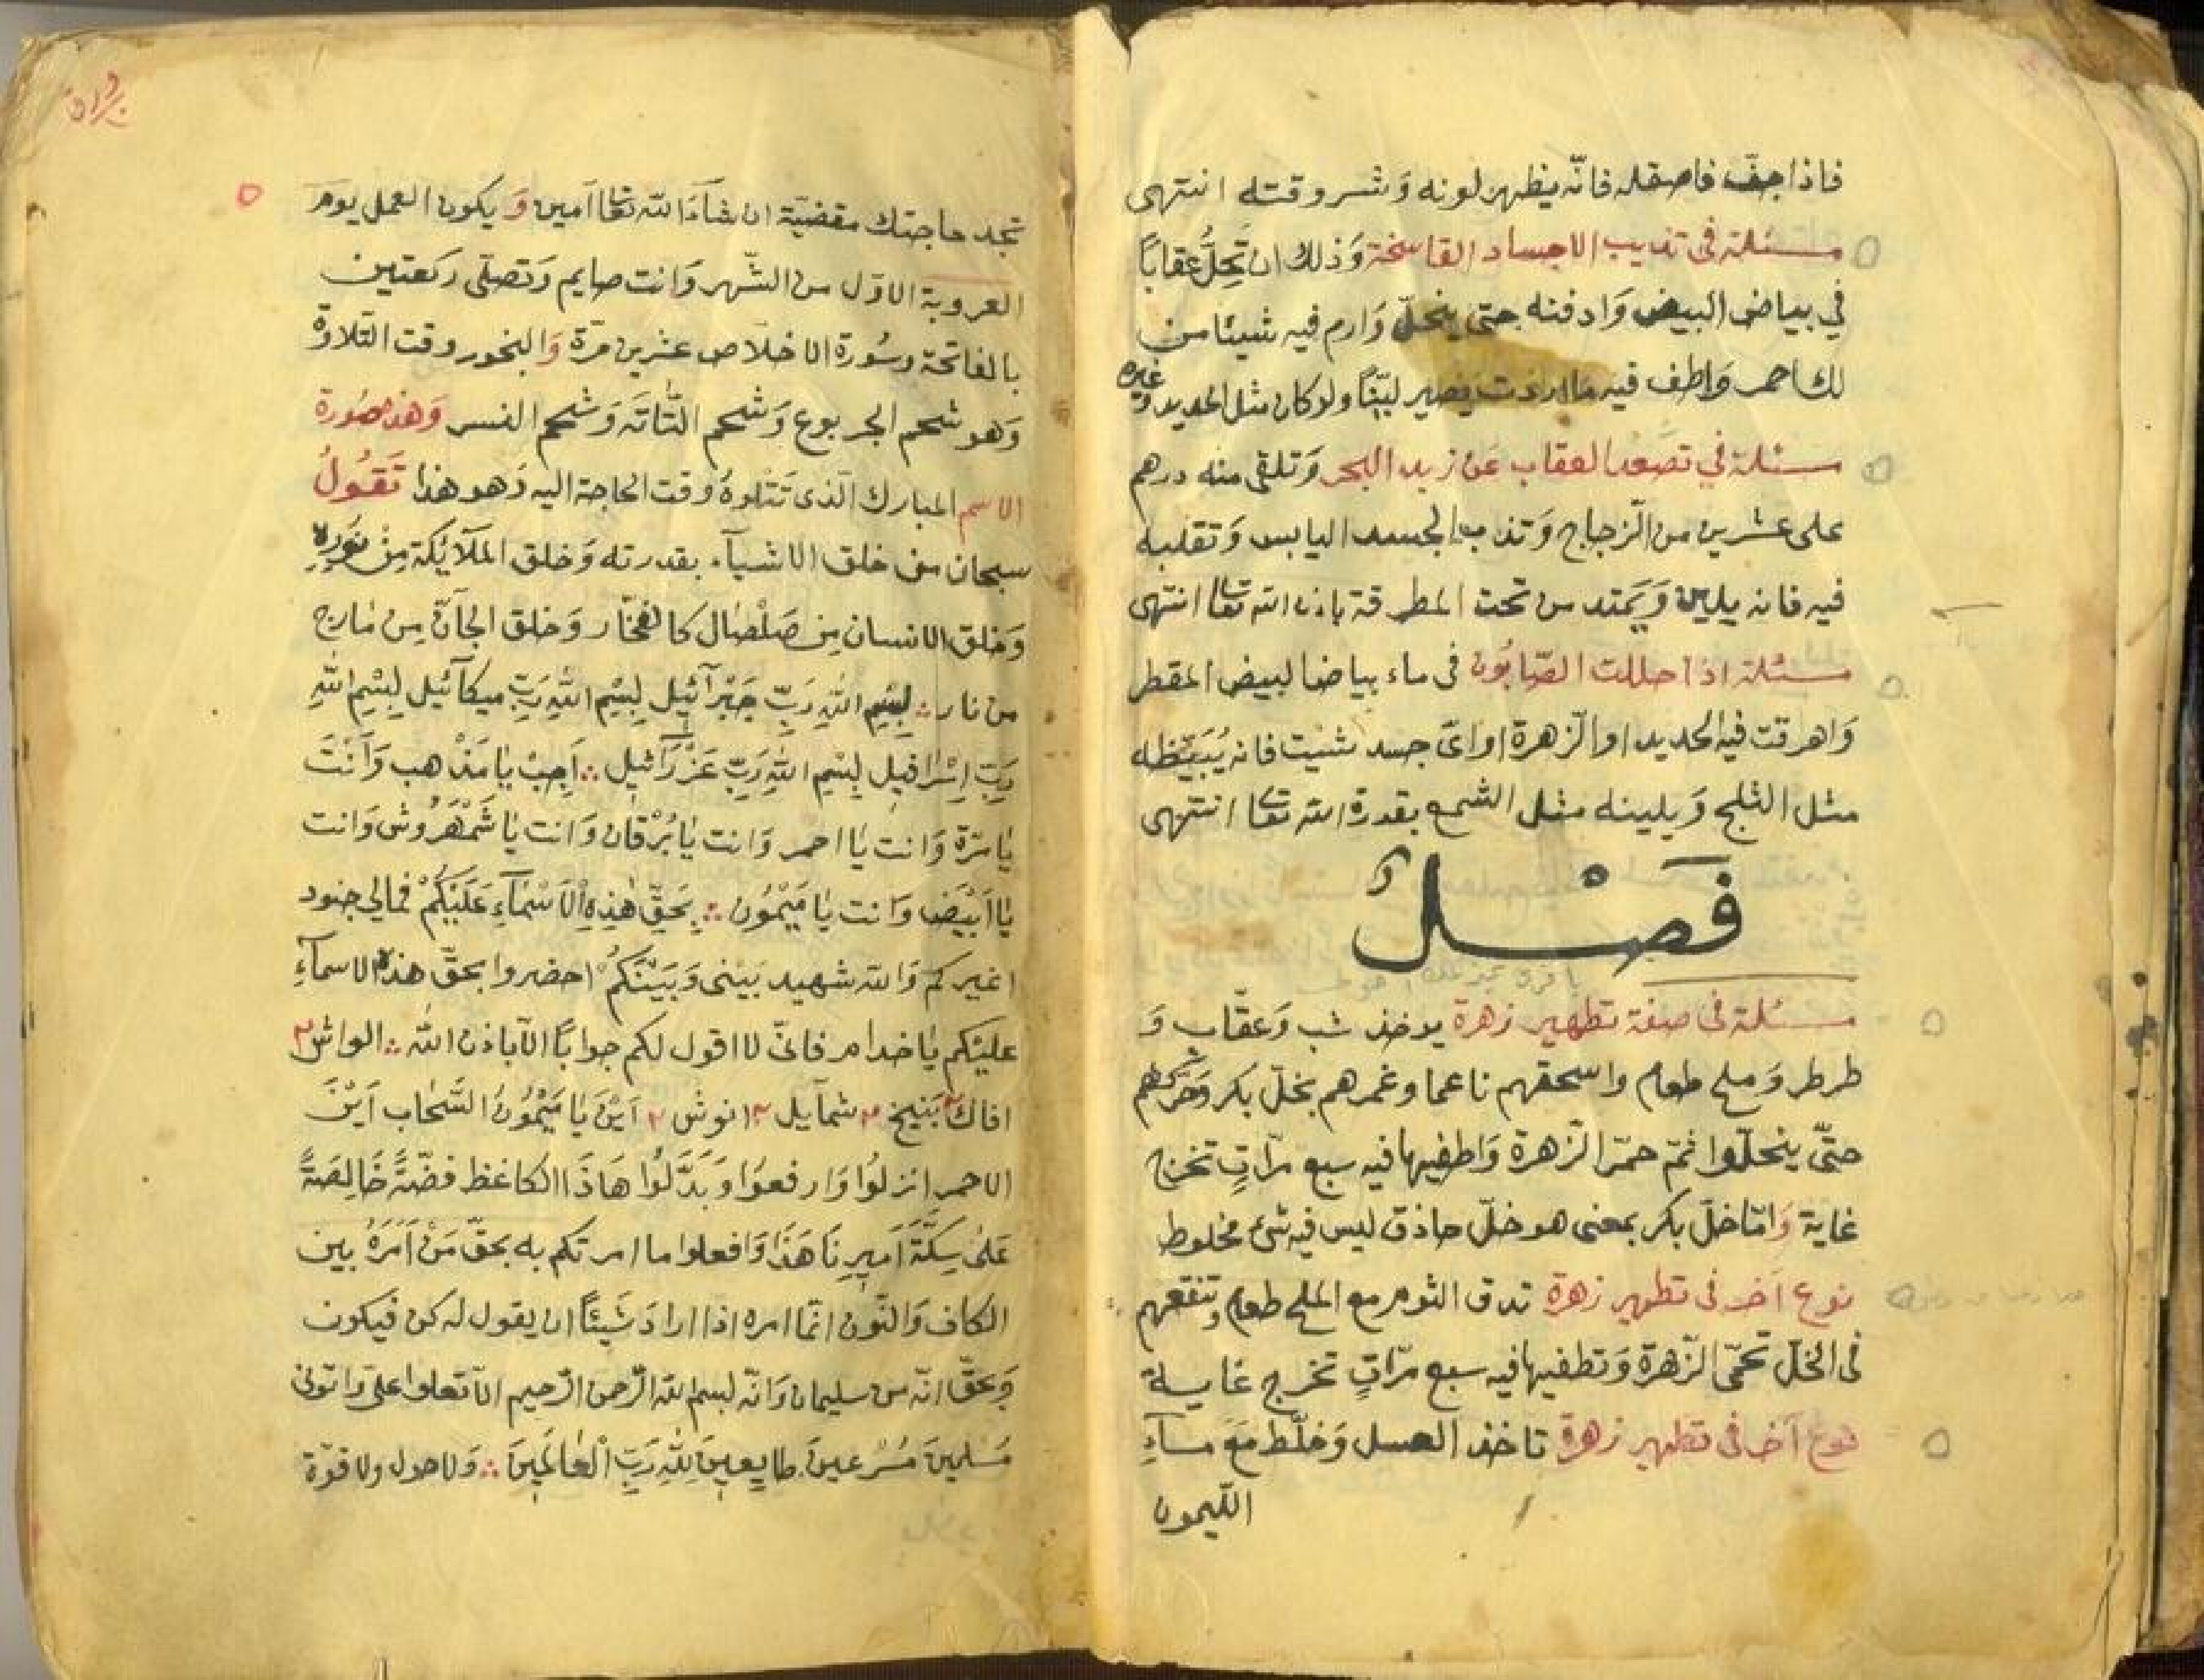 فاذا جفّ فاصقله فانّه يظهر لونه وَشسر وقته انتهى
مسئلة فى تذيب الاجساد القاسخة وَذلك ان تَحِلُّ عقابًا
في بياض البيض وَادفنه حتى ينحلّ وَارم فيه شيئا من
لك احمر وَاطف فيه ما اردت يصير ليّنًا ولو كان مثل الحديد وغيره
مسئلة في تصعد العقاب عَن زبد البحر وَتلقى منه درهم
على عشرين من الزّجاج وَتذيب الجسد اليابس وَتقلبه
فيه فانه يلين وَيَمتد من تحت المطرقة باذن الله تعا انتهى
مسئلة اذا حللت الصّابُون فى ماء بياض البيض المقطر
وَاهرقت فيه الحديد او الزّهرة او اىّ جسد شئت فانه يُبَيّظه
مثل الثلج وَيلينه مثل الشمع بقدرة الله تعا انتهى
فَصْل
مسئلة فى صفة تطهير زهرة يوخذ شب وَعقّاب وَ
طرطر وَملح طعام واسحقهم ناعما وغمرهم بخلّ بكر وَحَرّكهم
حتّى ينحلّوا ثمّ حمّر الزّهرة وَاطفيها فيه سبع مرّاتٍ تخرج
غاية وَامّا خلّ بكر بمعنى هو خلّ حاذق ليس فيه شئ مخلوط
نوع آخر فى تطهير زهرة تدق الثوم مع الملح طعام وتنقعهم
فى الخلّ تحمّى الزّهرة وَتطفيها فيه سبع مرّاتٍ تخرج غاية
نوع آخر فى تطهير زهرة تاخذ العسل وَخلّط مَعَ مَاءِ
اللّيمون
تجد حاجتك مقضيّة ان شآءَ الله تعا آمين وَ يكون العمل يوم
العروبة الاوّل من الشّهر وَانت صايم وَتصلّى ركعتين
بالفاتحة وسُورة الاخلاص عشرين مَرّة وَالبخور وقت التّلاوة
وَهو شحم الجربوع وَشحم التّاتَه وَشحم النسر وَهذه صُورة
الاسم المبارك الّذى تَتْلوهُ وقت الحاجة اليه وَهو هذا تَقُولُ
سبحان من خلق الاشيآء بقدرته وَخلق الملآئكة مِنْ نُورِهِ
وَخلق الانسان مِن صَلْصَال كالفخّار وَخلق الجآنّ مِن مَارج
من نار ؞ بِسْمِ اللهِ رَبِّ جَبْرآئيل بِسْمِ اللهِ رَبِّ ميكآئيل بِسْمِ اللهِ
رَبِّ اِسْرَافيل بِسْمِ اللهِ رَبِّ عَزْرَائيل ؞ اَجِبْ يَا مَذْهب وَاَنْتَ
يَا مُرّة وَانت يَا احمر وَانت يَا بُرْقان وَانت يَا شَمْهَرُوش وَانت
يَا اَبْيَض وَانت يَا مَيْمُون ؞ بِحَقِّ هَذِهِ الْاَسْمَاءِ عَلَيْكُمْ فمالي جنود
اغيركم وَالله شهيد بَيْنى وَبَيْنَكُمْ احضروا بحقّ هذه الاسمآءِ
عليْكم يَا خدام فانّى لا اقول لكم جوابًا الّا باذن الله ؞ الواش ٢
افاك ٢ بَنيخ ٢ شمآيل ٢ انوش ٢ اَيْنَ يَا مَيْمُونُ السَّحَاب اَيْنَ
الاحمر انزلُوا وَارفعوَا وَبَدّلُوا هَاذَا الكاغظ فضّةً خَالِصَةً
عَلى سِكّةَ اَمِيرِنَا هَذَا وَافعلوا ما امرتكم به بحقّ مَنْ اَمَرُهُ بين
الكاف وَالنّون انّما امره اذا ارادَ شَيئًا ان يقول له كن فيكون
وَبحقّ انّه من سليمان وَانّه بسم الله الرّحمن الرّحيم الّا تعلوا علىّ وَاتونى
مُسْلِمينَ مُسْرِعينَ طايعِينَ لِلّهِ رَبِّ الْعَالَمِينَ ؞ وَلا حول ولا قوّة